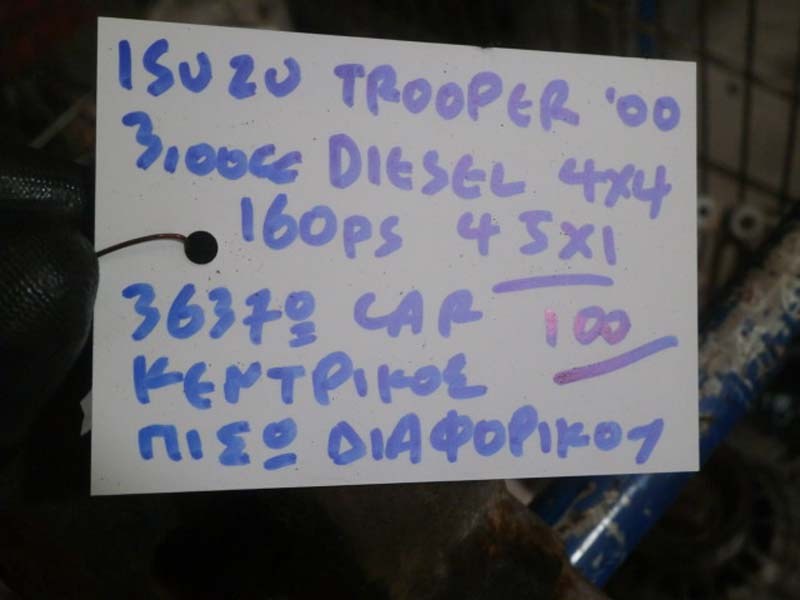 ISUZU TROOPER '00
3,100cc DIESEL 4X4
160PS 4JX1
3637º CAR 100
ΚΕΝΤΡΙΚΟΣ
ΠΙΣΩ ΔΙΑΦΟΡΙΚΟΥ